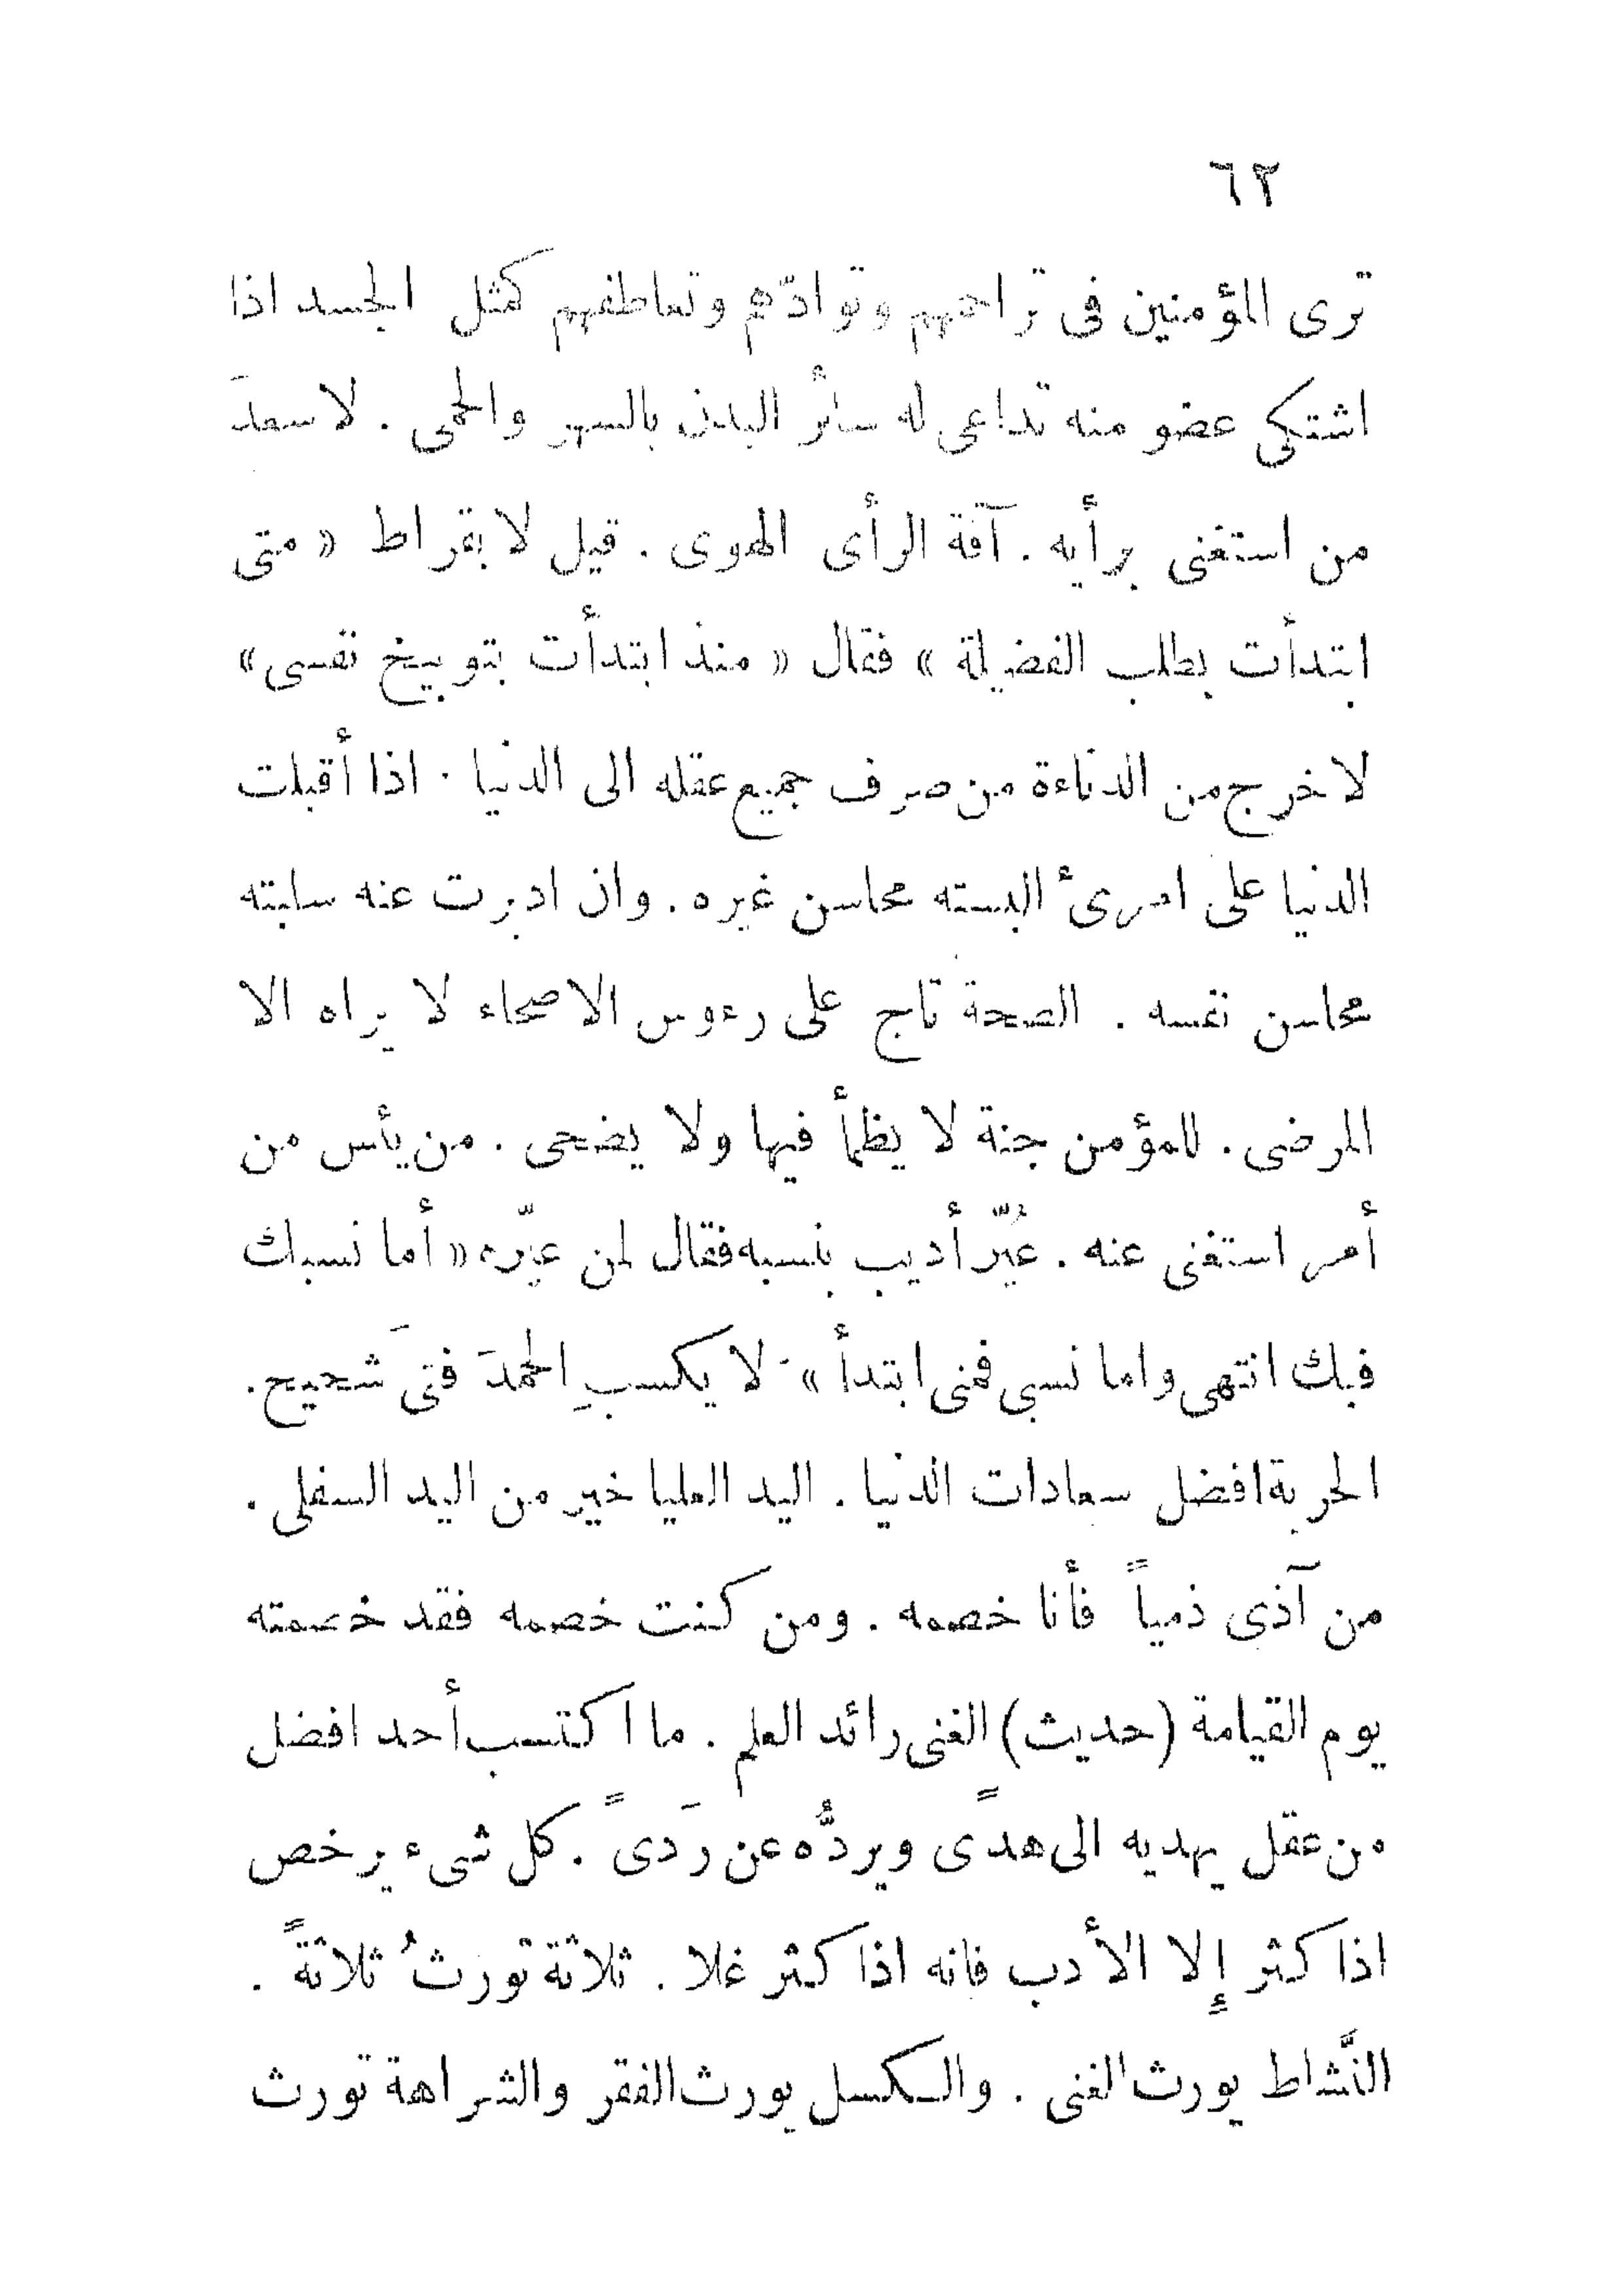 ٦٢
ترى المؤمنين فى تراحمهم وتوادّهم وتعاطفهم كمثل الجسد اذا
اشتكى عضو منه تداعى له سائر البدن بالسهر والحمى . لا سعدَ
من استغنى برأيه . آفة الرأى الهوى . قيل لابقراط « متى
ابتدأت بطلب الفضيلة » فقال « منذ ابتدأت بتوبيخ نفسى »
لا خرج من الدناءة من صرف جميع عقله الى الدنيا . اذا أقبلت
الدنيا على امرىء البسته محاسن غيره . وان ادبرت عنه سلبته
محاسن نفسه . الصحة تاج على رءوس الاصحاء لا يراه الا
المرضى . للمؤمن جنة لا يظمأ فيها ولا يضحى . من يأس من
أمر استغنى عنه . عُيّر أديب بنسبه فقال لمن عيّره « أما نسبك
فبك انتهى واما نسبى فمنى ابتدأ » - لا يكسبِ الحمدَ فتىَ شحيح .
الحرية افضل سعادات الدنيا . اليد العليا خير من اليد السفلى .
من آذى ذمياً فأنا خصمه . ومن كنت خصمه فقد خصمته
يوم القيامة (حديث) الغنى رائد العلم . ما اكتسب أحد افضل
من عقل يهديه الى هدًى ويردُّه عن رَدىً . كل شىء يرخص
اذا كثر إلا الأدب فانه اذا كثر غلا . ثلاثة تورثُ ثلاثةً .
النَّشاط يورث الغنى . والكسل يورث الفقر والشراهة تورث